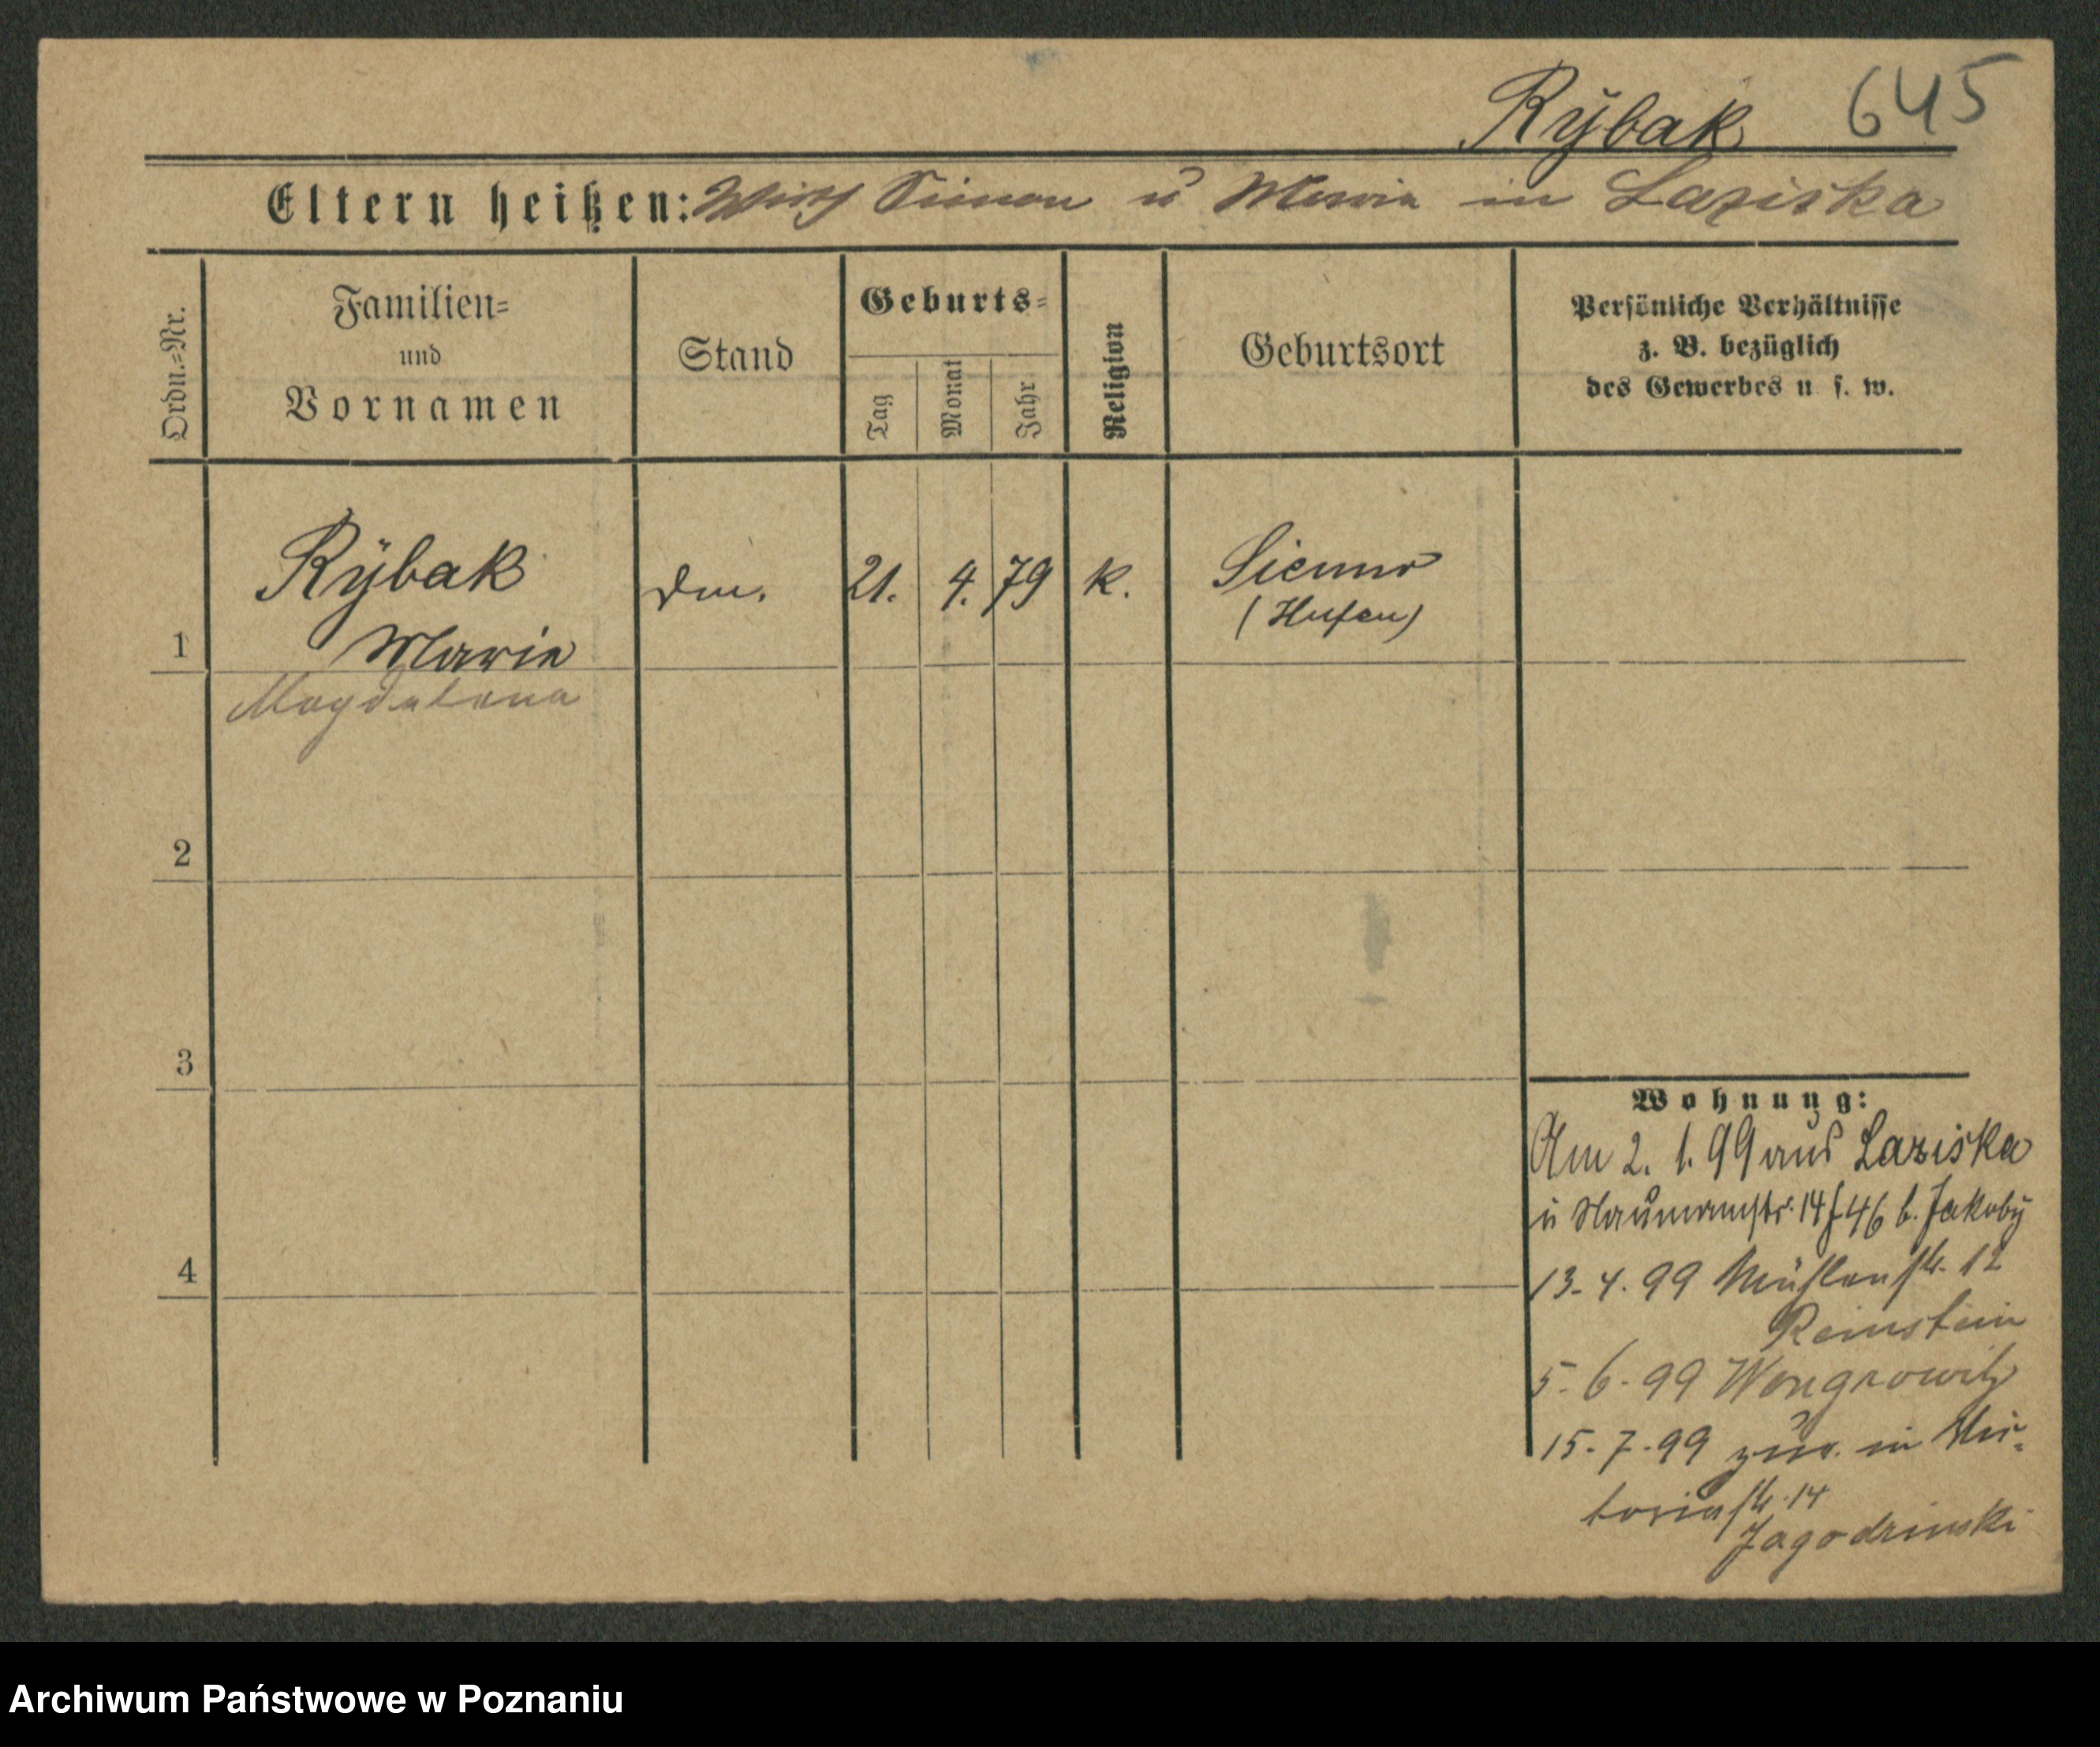 Rÿbak 645
Eltern heißen: Wirth Simon u Maria in Laziska
Ordn.=Nr.
Familien=
und
Vornamen
Stand
Geburts=
Tag
Monat
Jahr
Religion
Geburtsort
Persönliche Verhältnisse
z. B. bezüglich
des Gewerbes u s. w.
Rÿbak
1 Marie
dm. 21. 4. 79 k. Sienno
(Hufen)
Magdalena
2
3
4
Wohnung:
Am 2. 1. 99 aus Laziska
Naumannstr. 14 b. Jakobÿ
13. 4. 99 Mühlenstr. 12
Reinstein
5. 6. 99 Wongrowitz
15. 7. 99 zur. in Vic=
toriastr. 14
Jagodzinski
Archiwum Państwowe w Poznaniu